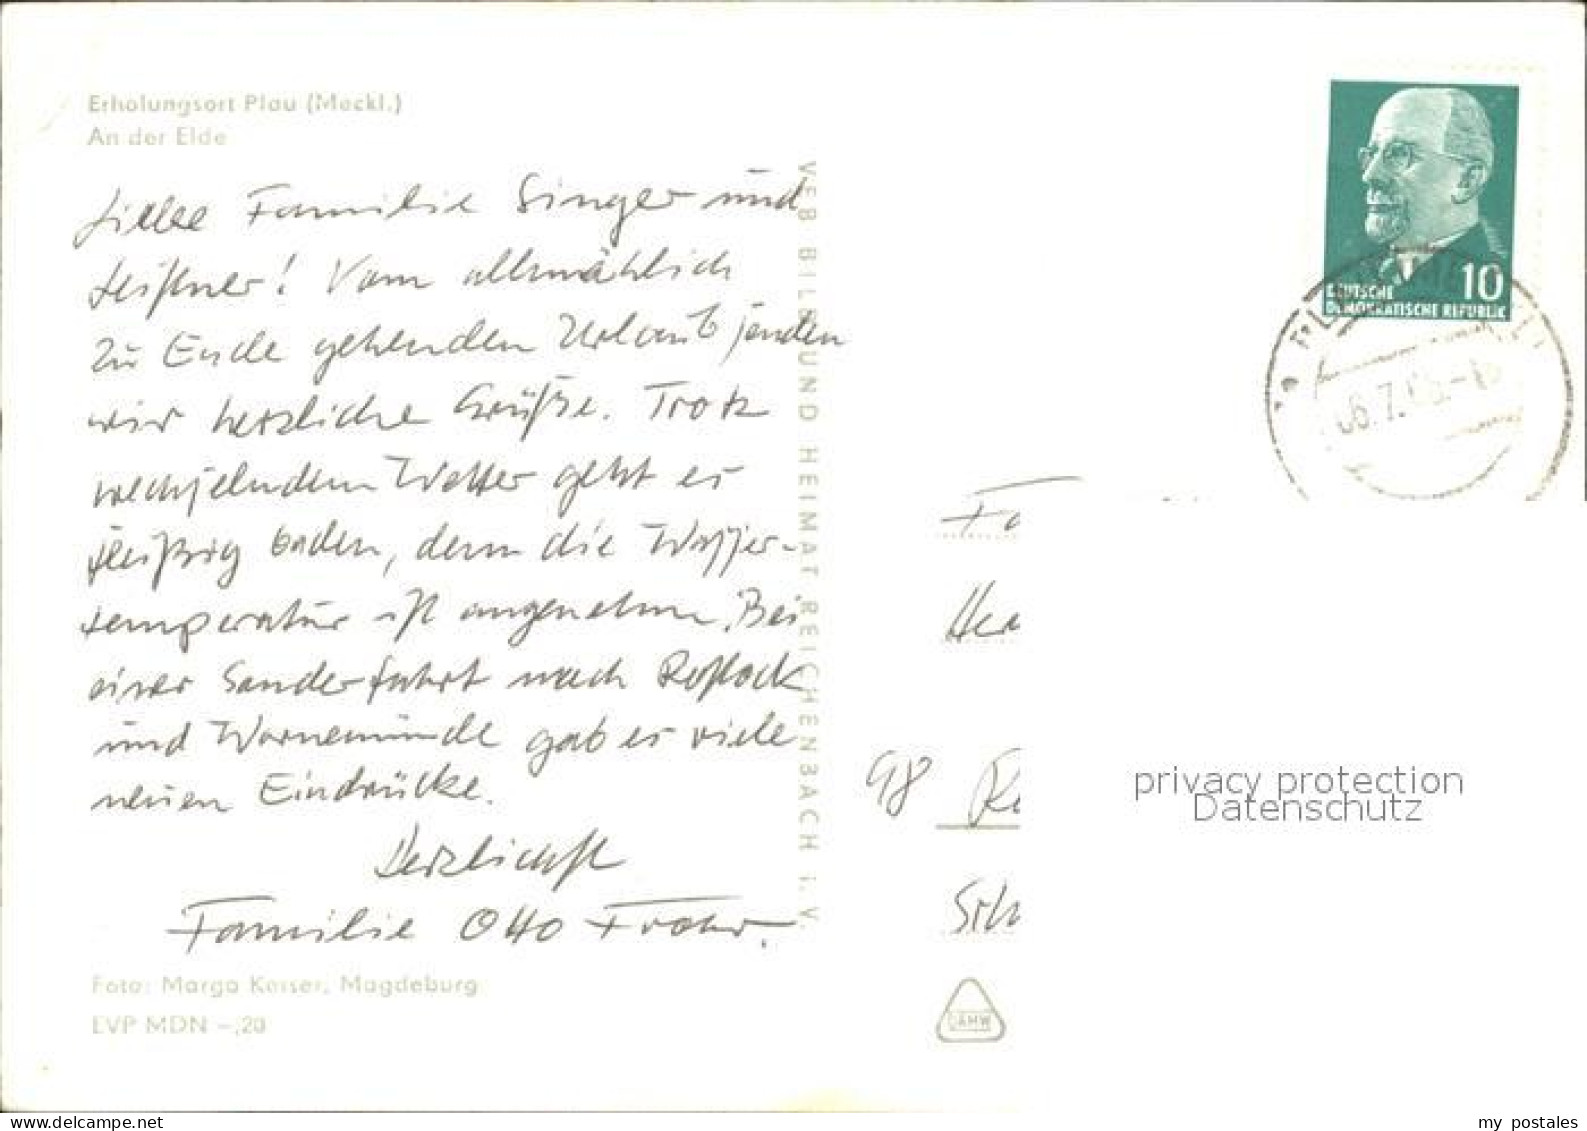 Erholungsort Plau (Meckl.)
An der Elde
Liebe Familie Singer und
Leistner! Vom allmählich
zu Ende gehenden Urlaub senden
wir herzliche Grüße. Trotz
wechselndem Wetter geht es
fleißig baden, denn die Wasser-
temperatur ist angenehm. Bei
einer Sonderfahrt nach Rostock
und Warnemünde gab es viele
neuen Eindrücke.
Herzlichst
Familie Otto
Foto: Marga Keiser, Magdeburg
EVP MDN –,20
VEB BILD UND HEIMAT REICHENBACH I. V.
10
DEUTSCHE
DEMOKRATISCHE REPUBLIK
Fa
Her
98 Re
Sch
DAMW
privacy protection
Datenschutz
my postales